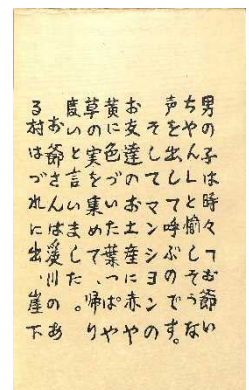 男の子は時々「お爺い
ちゃん」と愉しそうな
声を出して呼ぶのです。
そしてマンションの
お友達のお土産に赤や
黄に色づいた葉っぱや
草の実を集めて、帰り
度いと言いました。
お爺さんは災川のあ
る村はづれに出、崖下